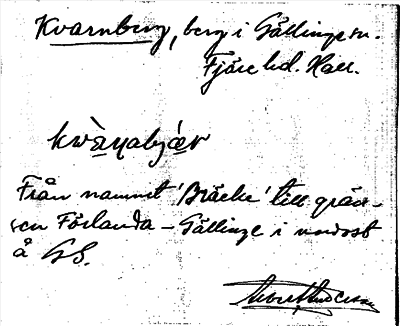 Kvarnberg, berg i Gällinge sn.
Fjäre hd. Hall.
kwàṇabjær
Från namnet 'Bräcke' till grän-
sen Förlanda - Gällinge i nordost
å GS.